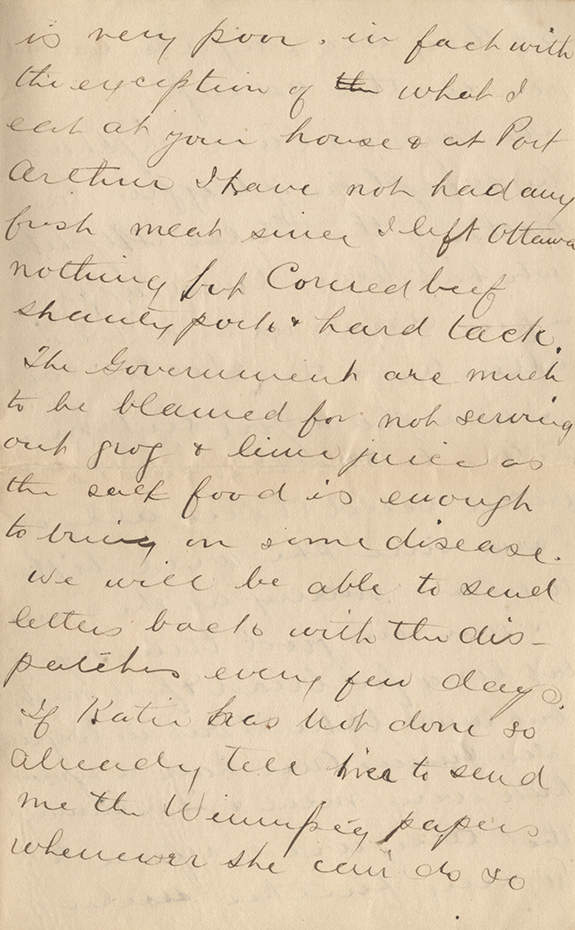 is very poor. in fact with
the exception of the what I
eat at your house & at Port
Arthur I have not had any
fresh meat since I left Ottawa
nothing but Corned beef
shanty pork & hard tack.
The Government are much
to be blamed for not serving
out grog & lime juice as
the salt food is enough
to bring on some disease.
We will be able to send
letters back with the dis-
patches every few days.
If Katie has not done so
already tell her to send
me the Winnipeg papers
whenever she can do so